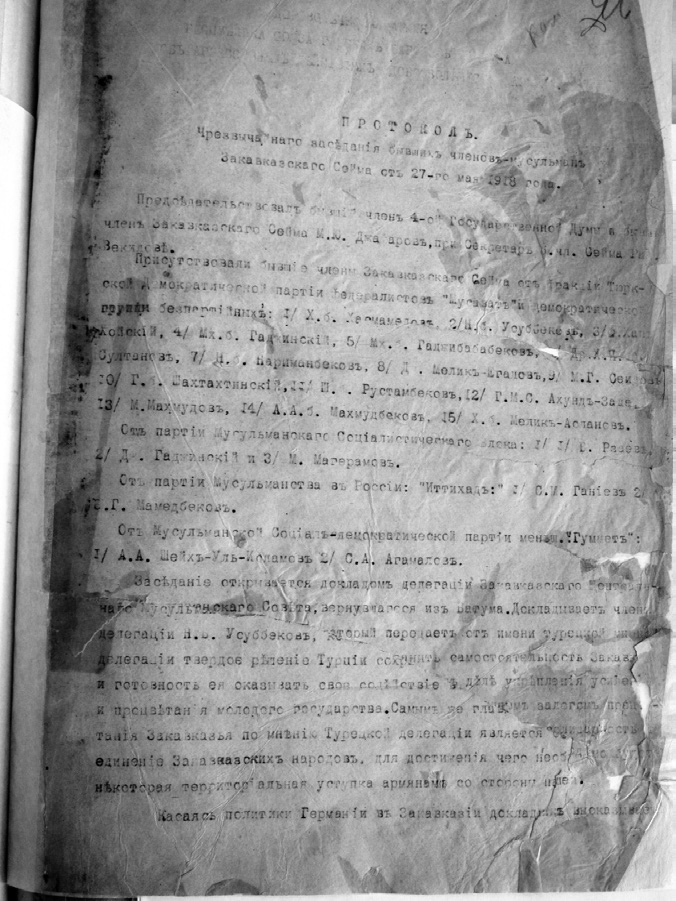 ПРОТОКОЛЪ.
Чрезвычайнаго засѣданія бывшихъ членовъ-мусульманъ
Закавказскаго Сейма отъ 27-го мая 1918 года.
Предсѣдательствовалъ бывшій членъ 4-ой Государственной Думы и
членъ Закавказскаго Сейма М.Ю. Джафаровъ, при Секретарѣ б.чл. Сейма
Векиловѣ.
Присутствовали бывшіе члены Закавказскаго Сейма отъ фракціи Тюрк-
ской Демократической партіи Федералистовъ "Мусаватъ" и демократической
группы безпартійныхъ: 1/ Х.б. Хасмамедовъ, 2/Н.б. Усуббековъ, 3/Ф.Хан
Хойскій, 4/ Мх.б. Гаджинскій, 5/ Мх.б. Гаджибабабековъ,
Султановъ, 7/ Н.б. Нариманбековъ, 8/ Д. Меликъ-Егановъ,9/ М.Г.
10/ Г.б. Шахтахтинскій,11/ Рустамбековъ,12/ Г.М.С. Ахундъ-Заде,
13/ М.Махмудовъ, 14/ А.А.б. Махмудбековъ, 15/ Х.б. Меликъ-Аслановъ.
Отъ партіи Мусульманскаго Соціалистическаго блока: 1/ 1/
2/ Гаджинскій и 3/ М. Магерамовъ.
Отъ партіи Мусульманства въ Россіи: "Иттихадъ:" 1/ С.М. Ганіевъ 2/
Г. Мамедбековъ.
Отъ Мусульманской Соціалъ-демократической партіи меньш. "Гумметъ":
1/ А.А. Шейхъ-Уль-Исламовъ 2/ С.А. Агамаловъ.
Засѣданіе открывается докладомъ делегаціи Закавказскаго
наго Мусульманскаго Совѣта, вернувшагося изъ Батума.Докладываетъ членъ
делегаціи Н.б. Усуббековъ, который передаетъ отъ имени турецкой
делегаціи твердое рѣшеніе Турціи сохранить самостоятельность
и готовность ея оказывать свое содѣйствіе въ дѣлѣ укрѣпленія
и процвѣтанія молодого государства.Самымъ же главнымъ залогомъ
танія Закавказья по мнѣнію Турецкой делегаціи является
единеніе Закавказскихъ народовъ, для достиженія чего
нѣкоторая территоріальная уступка армянамъ со стороны
Касаясь политики Германіи въ Закавказіи докладчикъ